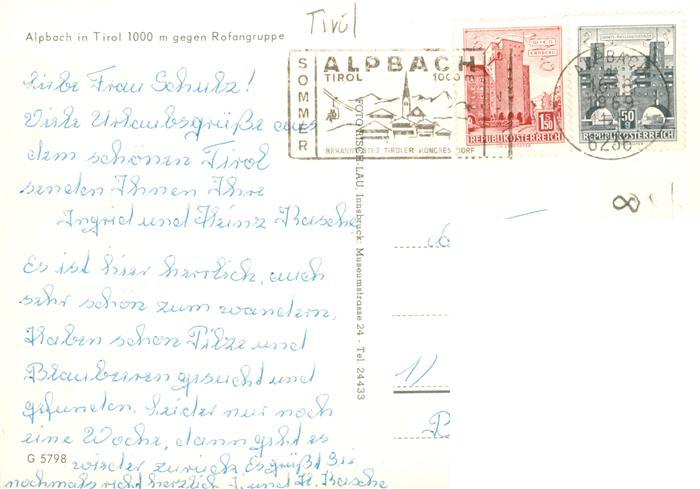 Tirol
Alpbach in Tirol 1000 m gegen Rofangruppe
SOMMER
ALPBACH
TIROL 1000 m
BEKANNTES TIROLER KONGRESSDORF
WIEN
ERDBERG
1S
1.50
REPUBLIK ÖSTERREICH
50g
REPUBLIK ÖSTERREICH
1969
6236
8
Liebe Frau Schulz!
Viele Urlaubsgrüße aus
dem schönen Tirol
senden Ihnen Ihre
Ingrid und Heinz Rasche
Es ist hier herrlich, auch
sehr schön zum wandern.
Haben schon Pilze und
Blaubeeren gesucht und
gefunden. Leider nur noch
eine Woche, dann geht es
wieder zurück. Es grüßt Sie
nochmals recht herzlich I. und H. Rasche
G 5798
LAU, Innsbruck, Museumstrasse 24 - Tel. 24433
1)